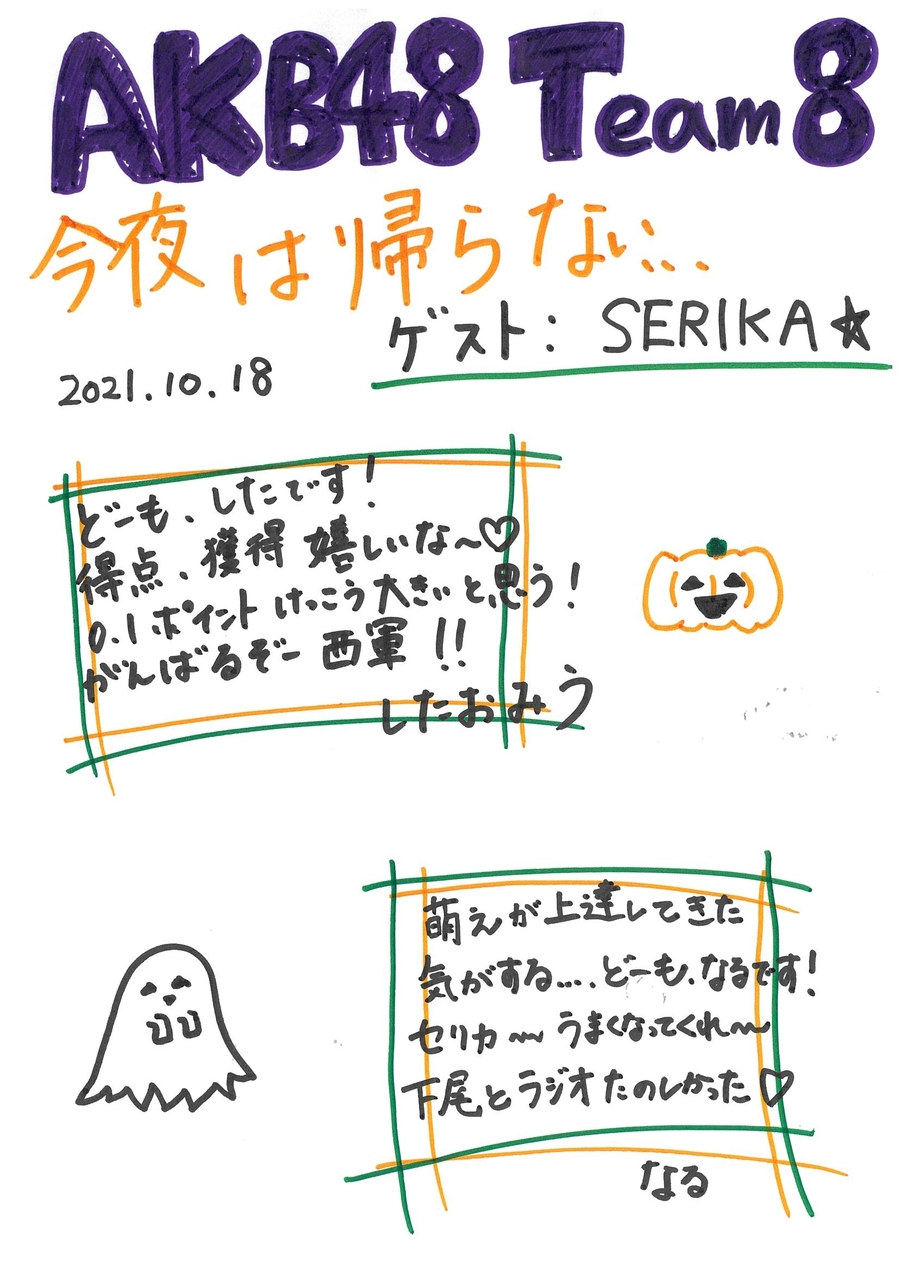 AKB48 Team8
今夜は帰らない...
ゲスト: SERIKA☆
2021.10.18
どーも、したです!
得点、獲得 嬉しいな~♡
0.1ポイント けっこう大きいと思う!
がんばるぞー 西軍!!
したおみう
萌えが上達してきた
気がする.... どーも、なるです!
セリカ~~ うまくなってくれ~~
下尾とラジオたのしかった♡
なる